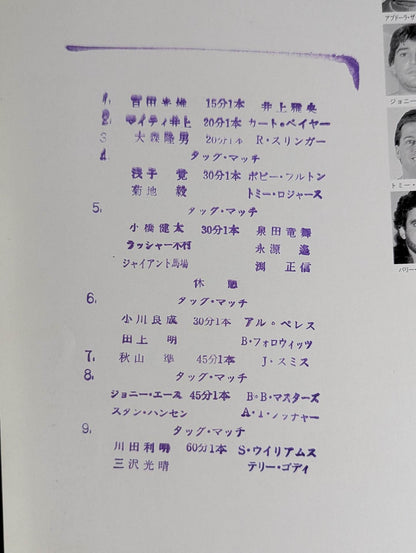 アブドーラ・ザ
1. 百田光雄 15分1本 井上雅央
2. マイティ井上 20分1本 カート・ベイヤー
3 大森隆男 20分1本 R・スリンガー
4. タッグ・マッチ
浅子 覚 30分1本 ボビー・フルトン
菊地 毅 トミー・ロジャース
5. タッグ・マッチ
小橋健太 30分1本 泉田竜舞
ラッシャー木村 永源 遙
ジャイアント馬場 渕 正信
休憩
6. タッグ・マッチ
小川良成 30分1本 アル・ペレス
田上 明 B・フォロウィッツ
7. 秋山 準 45分1本 J・スミス
8. タッグ・マッチ
ジョニー・エース 45分1本 B・B・マスターズ
スタン・ハンセン A・T・ブッチャー
9. タッグ・マッチ
川田利明 60分1本 S・ウイリアムス
三沢光晴 テリー・ゴディ
ジョニー
トミー
バリー